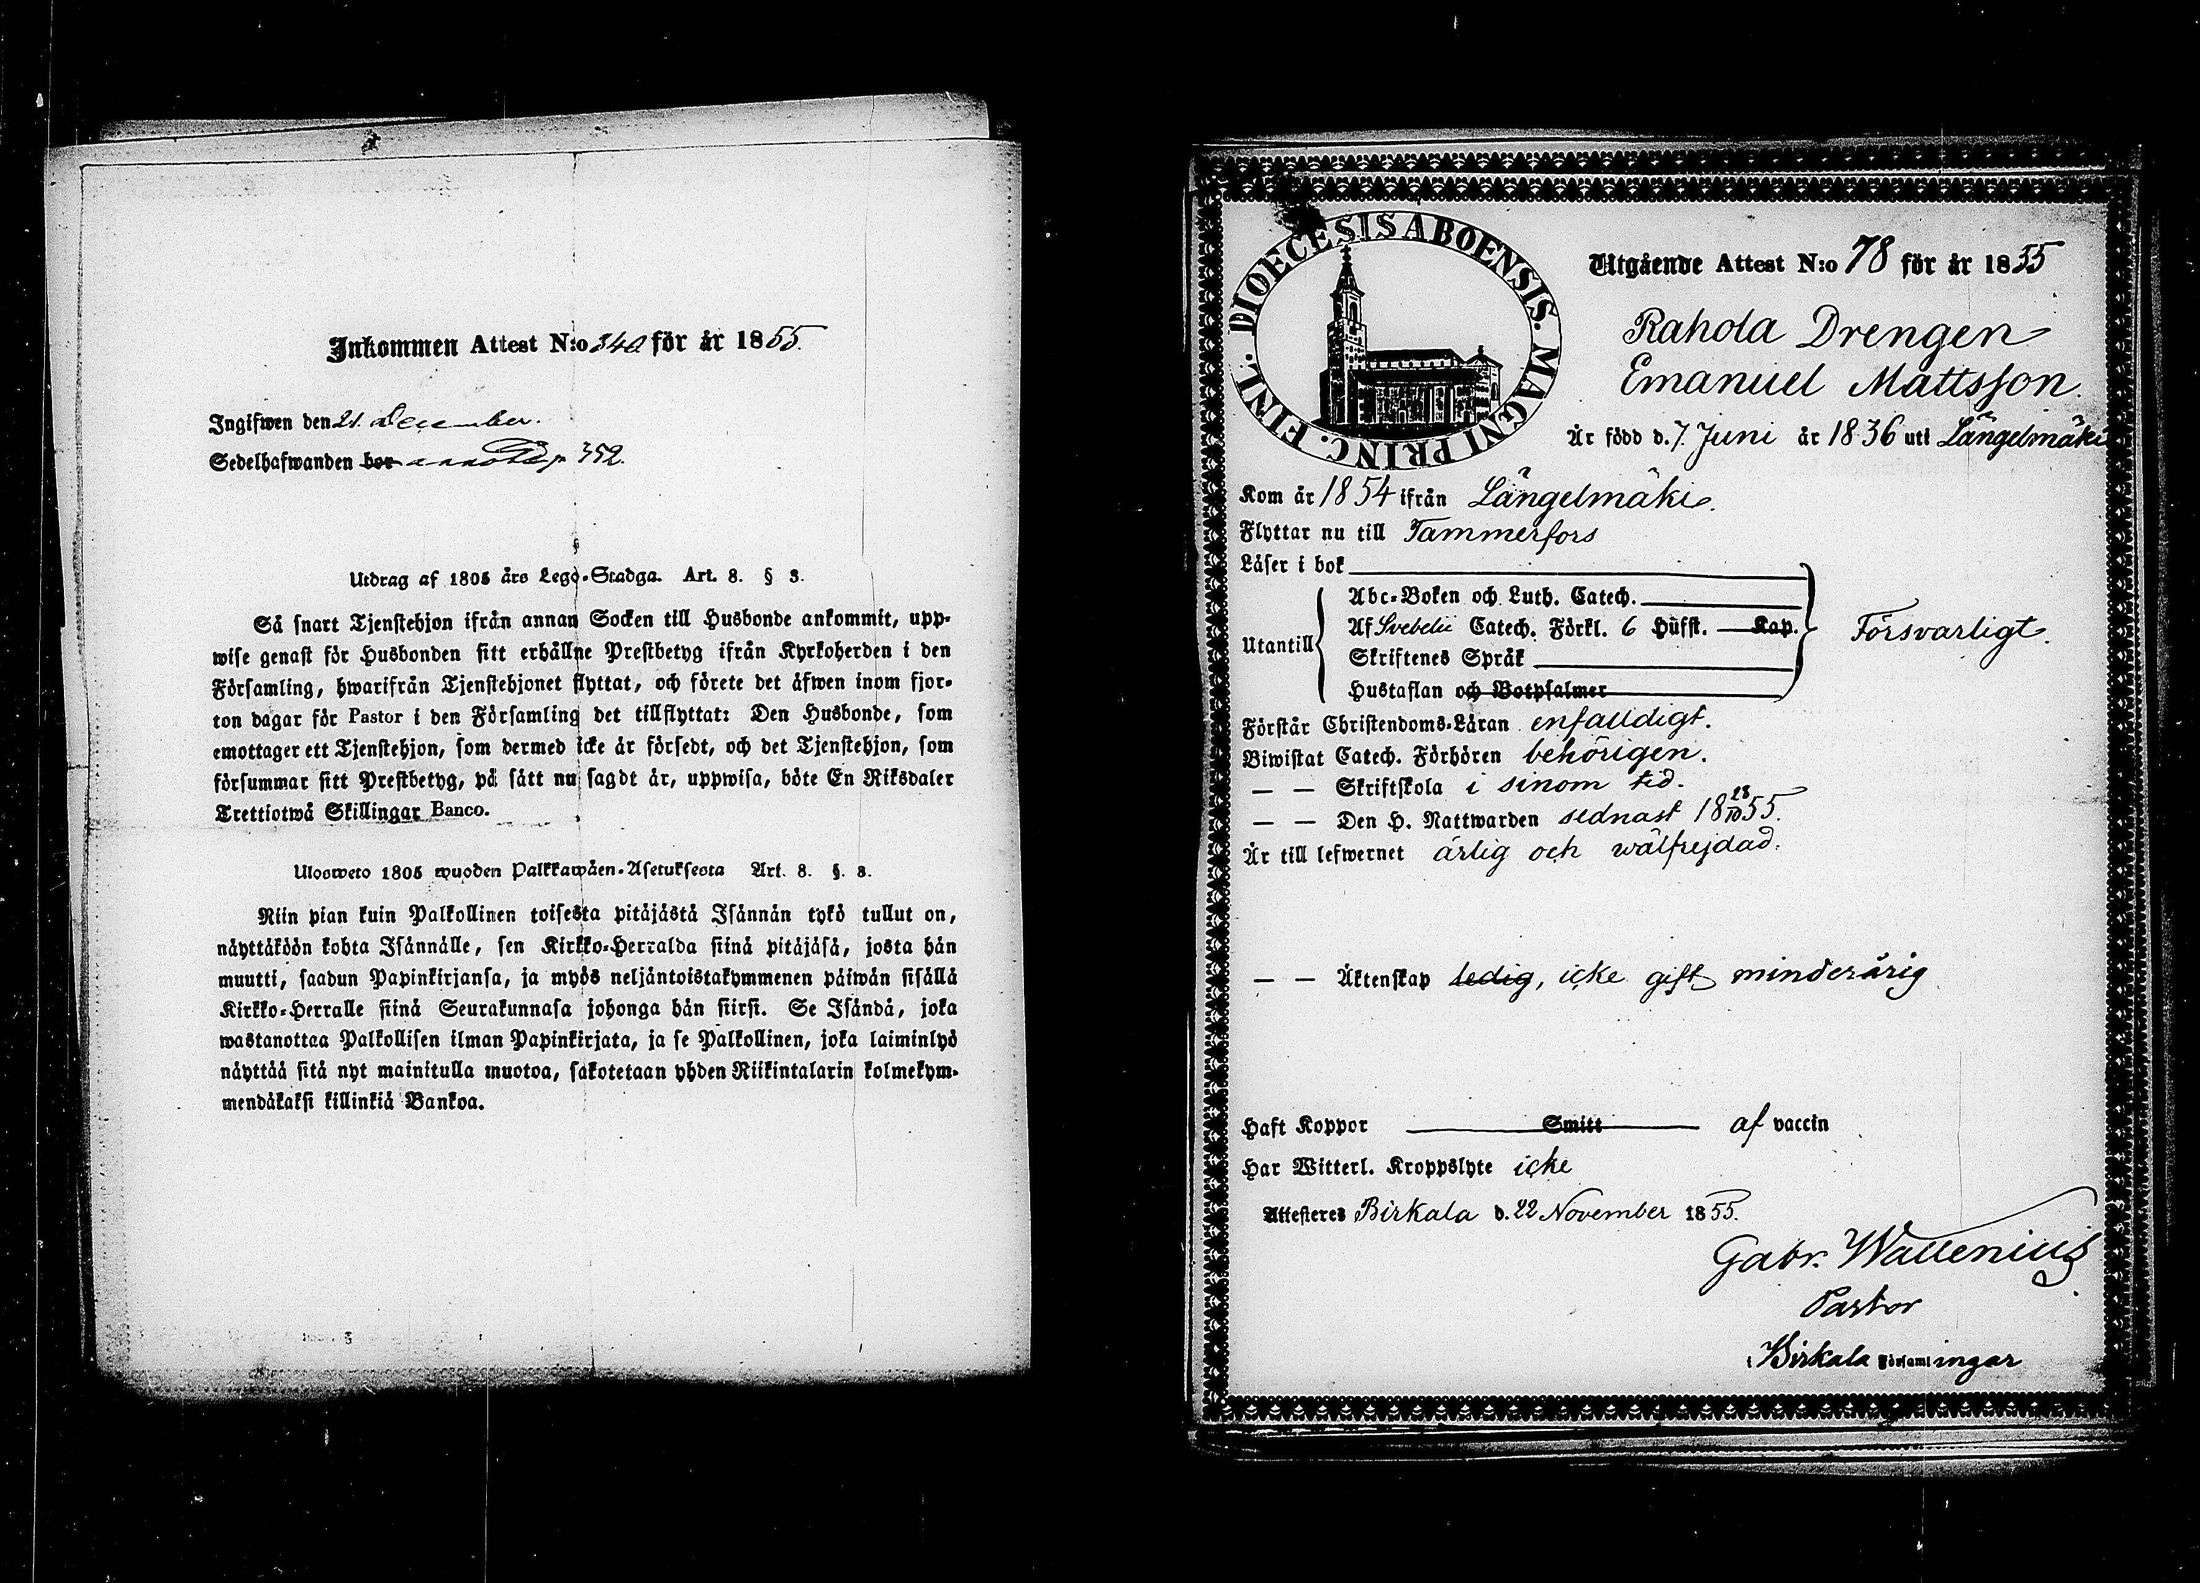 Inkommen Attest N:o 340 för år 1855.
Ingifwen den 21. December.
Sedelhafwanden bor annot. p. 352.
Utdrag af 1805 års Lego-Stadga. Art. 8. § 3.
Så snart Tjenstehjon ifrån annan Socken till Husbonde ankommit, upp-
wise genast för Husbonden sitt erhållne Prestbetyg ifrån Kyrkoherden i den
Församling, hwarifrån Tjenstehjonet flyttat, och förete det äfwen inom fjor-
ton dagar för Pastor i den Församling det tillflyttat: Den Husbonde, som
emottager ett Tjenstehjon, som dermed icke är försedt, och det Tjenstehjon, som
försummar sitt Prestbetyg, på sätt nu sagdt är, uppwisa, böte En Riksdaler
Trettiotwå Skillingar Banco.
Ulosweto 1805 wuoden Palkkawäen-Asetuksesta Art. 8. §. 3.
Niin pian kuin Palkollinen toisesta pitäjästä Isännän tykö tullut on,
näyttäköön kohta Isännälle, sen Kirkko-Herralda siinä pitäjäsä, josta hän
muutti, saadun Papinkirjansa, ja myös neljäntoistakymmenen päiwän sisällä
Kirkko-Herralle siinä Seurakunnasa johonga hän siirsi. Se Isändä, joka
wastanottaa Palkollisen ilman Papinkirjata, ja se Palkollinen, joka laiminlyö
näyttää sitä nyt mainitulla muotoa, sakotetaan yhden Riikintalarin kolmekym-
mendäkaksi killinkiä Bankoa.
DIOECESIS ABOENSIS. MAGNI PRINC. FINL.
Utgående Attest N:o 78 för år 1855
Rahola Drengen
Emanuel Mattsson.
Är född d. 7. Juni år 1836 uti Längelmäki
Kom år 1854 ifrån Längelmäki.
Flyttar nu till Tammerfors
Läser i bok
Utantill
Abc-Boken och Luth. Catech.
Af Svebelii Catech. Förkl. 6 Hufst. Kap.
Skriftenes Språk
Hustaflan och Botpsalmer
Försvarligt.
Förstår Christendoms-Läran enfalldigt.
Biwistat Catech. Förhören behörigen.
— — Skriftskola i sinom tid.
— — Den H. Nattwarden sednast 18 28/10 55.
Är till lefwernet ärlig och wälfrejdad.
— — Äktenskap ledig, icke gift minderårig
Haft Koppor Smitt af vaccin
Har Witterl. Kroppslyte icke
Attesteres Birkala d. 22 November 1855.
Gabr. Wallenius
Pastor
i Birkala Församlingar